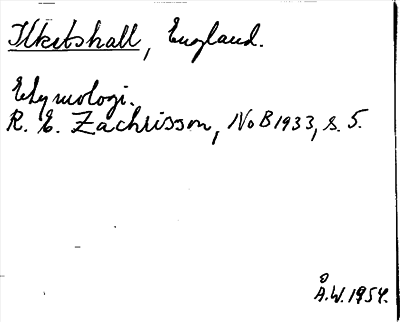 Ilketshall, England.
Etymologi.
R. E. Zachrisson, NoB 1933, s. 5.
Å.W. 1954.